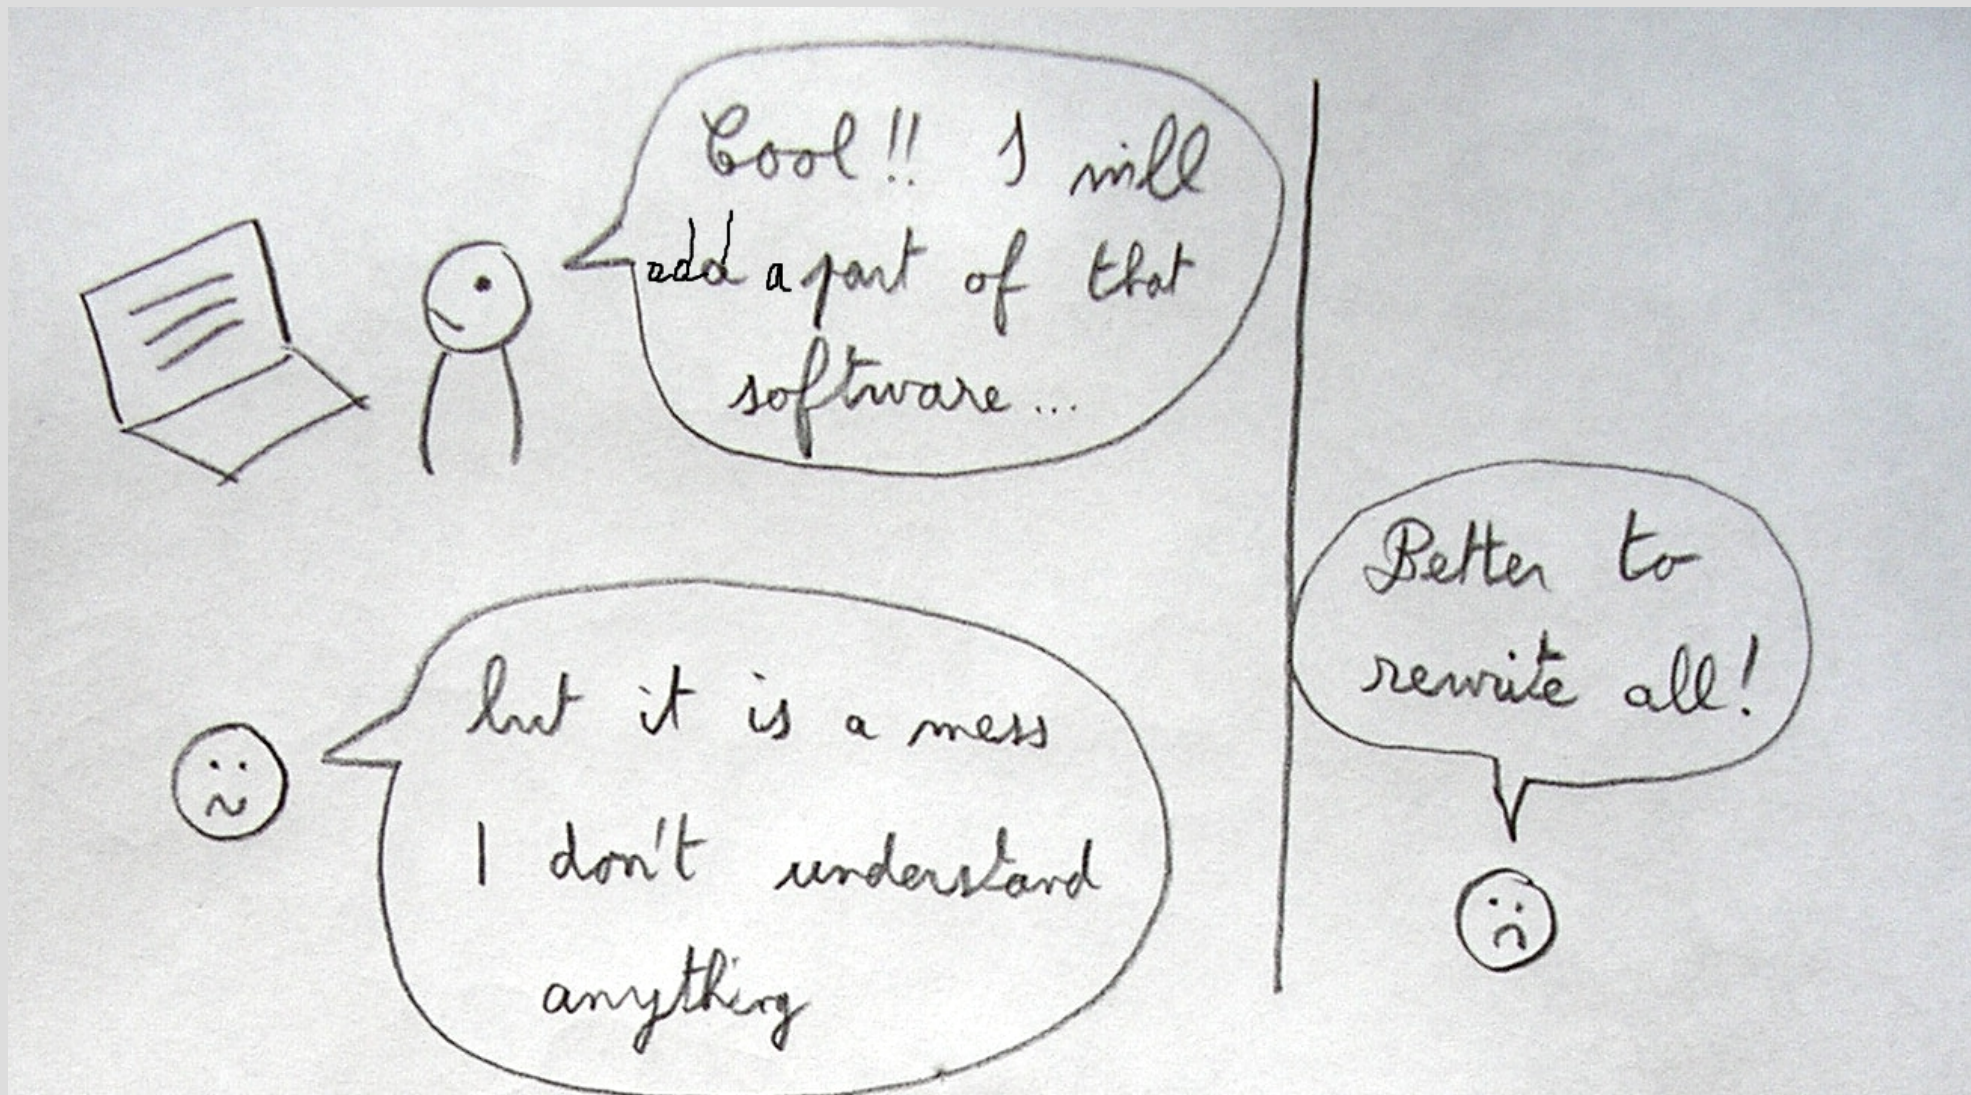 Cool!! I will
add a part of that
software...
but it is a mess
I don't understand
anything
Better to
rewrite all!